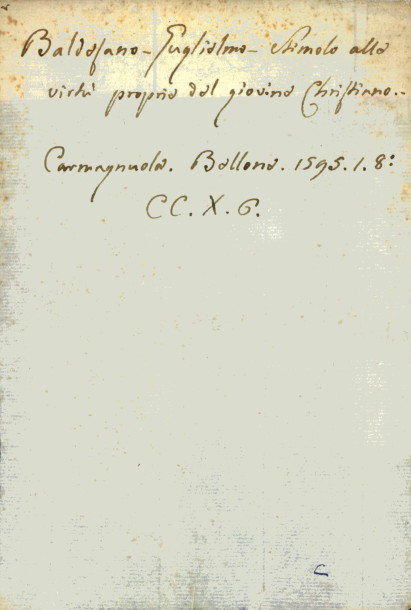 Baldesano - Guglielmo - Stimolo alle
virtù proprie del giovine Christiano. -
Carmagnuola. Bellone. 1595. 1. 8:
CC. X. 6.
C